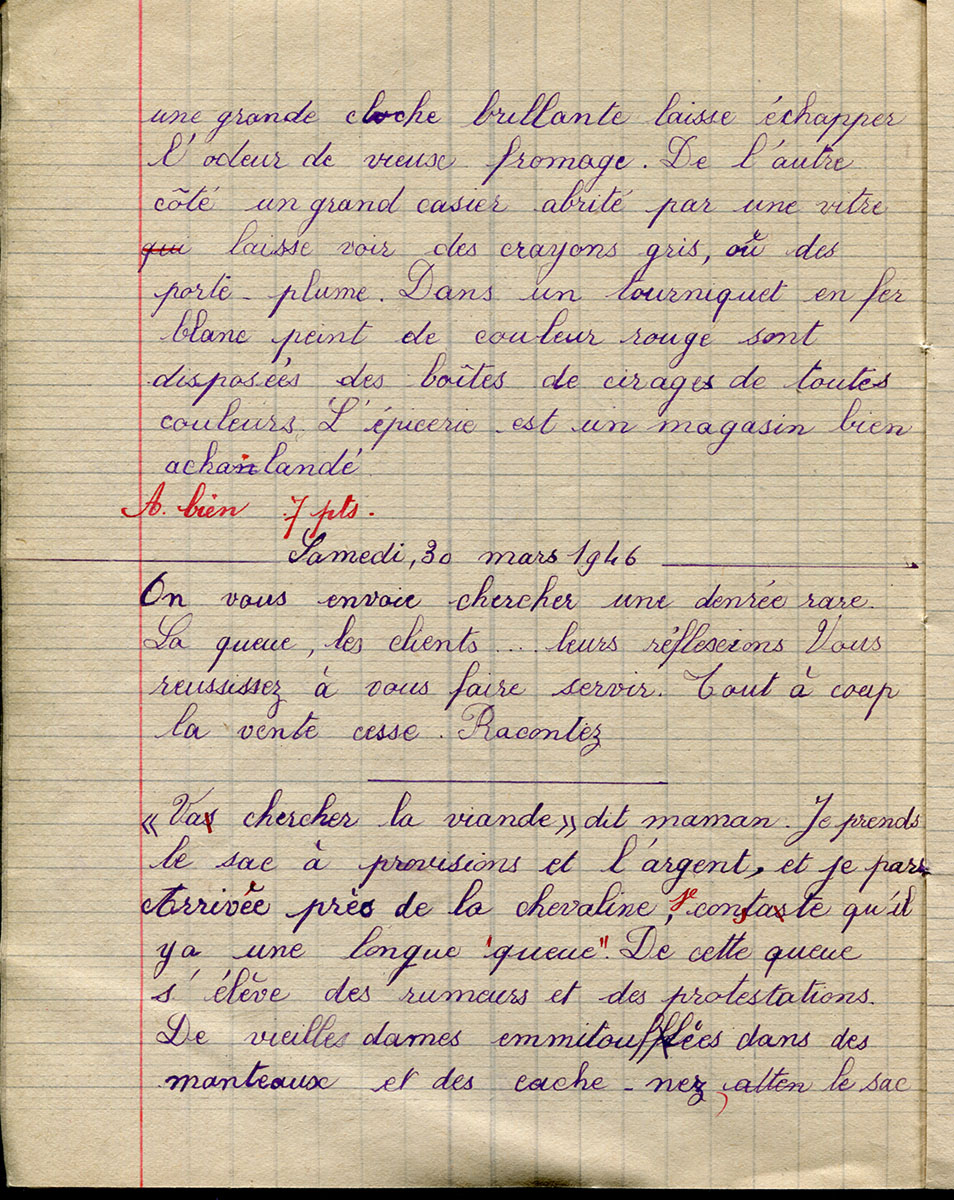 une grande cloche brillante laisse échapper
l'odeur de vieux fromage. De l'autre
côté un grand casier abrité par une vitre
qui laisse voir des crayons gris, où des
porte-plume. Dans un tourniquet en fer
blanc peint de couleur rouge sont
disposées des boîtes de cirages de toutes
couleurs. L'épicerie est un magasin bien
achanlandé
A. bien 7 pts.
Samedi, 30 mars 1946
On vous envoie chercher une denrée rare.
La queue, les clients .... leurs réflexions Vous
reussissez à vous faire servir. Tout à coup
la vente cesse. Racontez
« Vas chercher la viande » dit maman. Je prends
le sac à provisions et l'argent, et je pars
Arrivée près de la chevaline, je constaste qu'il
ya une longue "queue". De cette queue
s'élève des rumeurs et des protestations.
De vieilles dames emmitoufflées dans des
manteaux et des cache-nez, atten le sac